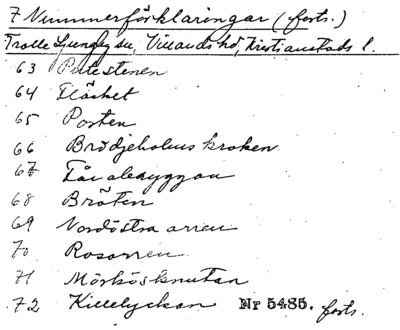 7 Nummerförklaringar (forts.)
Trolle Ljungby sn, Villands hd, Kristianstads l.
63 Pelestenen
64 Fläsket
65 Porten
66 Brödjeholms kroken
67
68 Bråten
69 Nordöstra orren
70 Rosorren
71 Mörkösknutan
72 Killelyckan Nr 5485. forts.